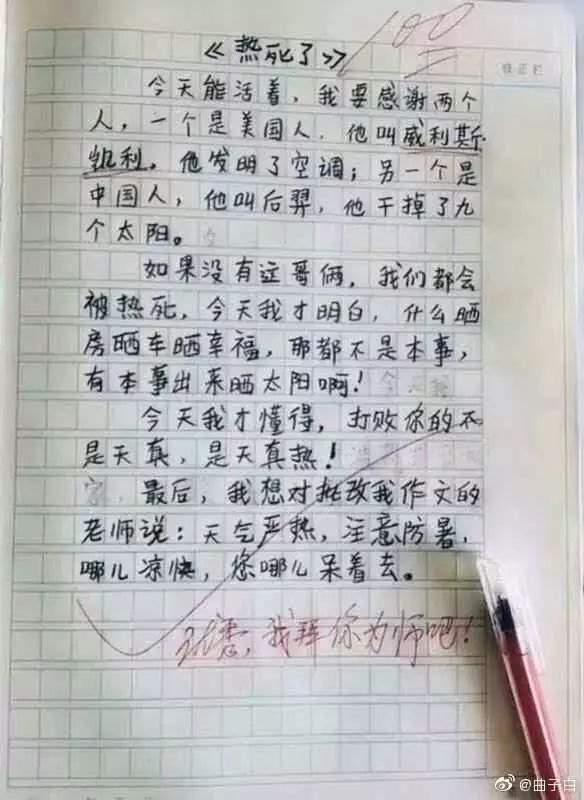 《热死了》 100
修正栏
今天能活着，我要感谢两个
人，一个是美国人，他叫威利斯
凯利，他发明了空调；另一个是
中国人，他叫后羿，他干掉了九
个太阳。
如果没有这哥俩，我们都会
被热死，今天我才明白，什么晒
房晒车晒幸福，那都不是本事，
有本事出来晒太阳啊！
今天我才懂得，打败你的不
是天真，是天真热！
最后，我想对批改我作文的
老师说：天气严热，注意防暑，
哪儿凉快，您哪儿呆着去。
优秀，我拜你为师吧！
@曲子白